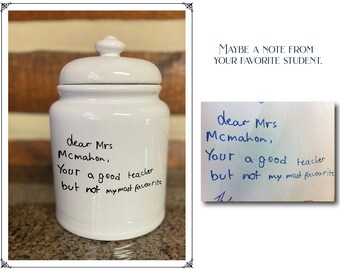 MAYBE A NOTE FROM
YOUR FAVORITE STUDENT.
dear Mrs
Mcmahon,
Your a good teacher
but not my most favourite
dear Mrs
Mcmahon,
Your a good teacher
but not my most favourite